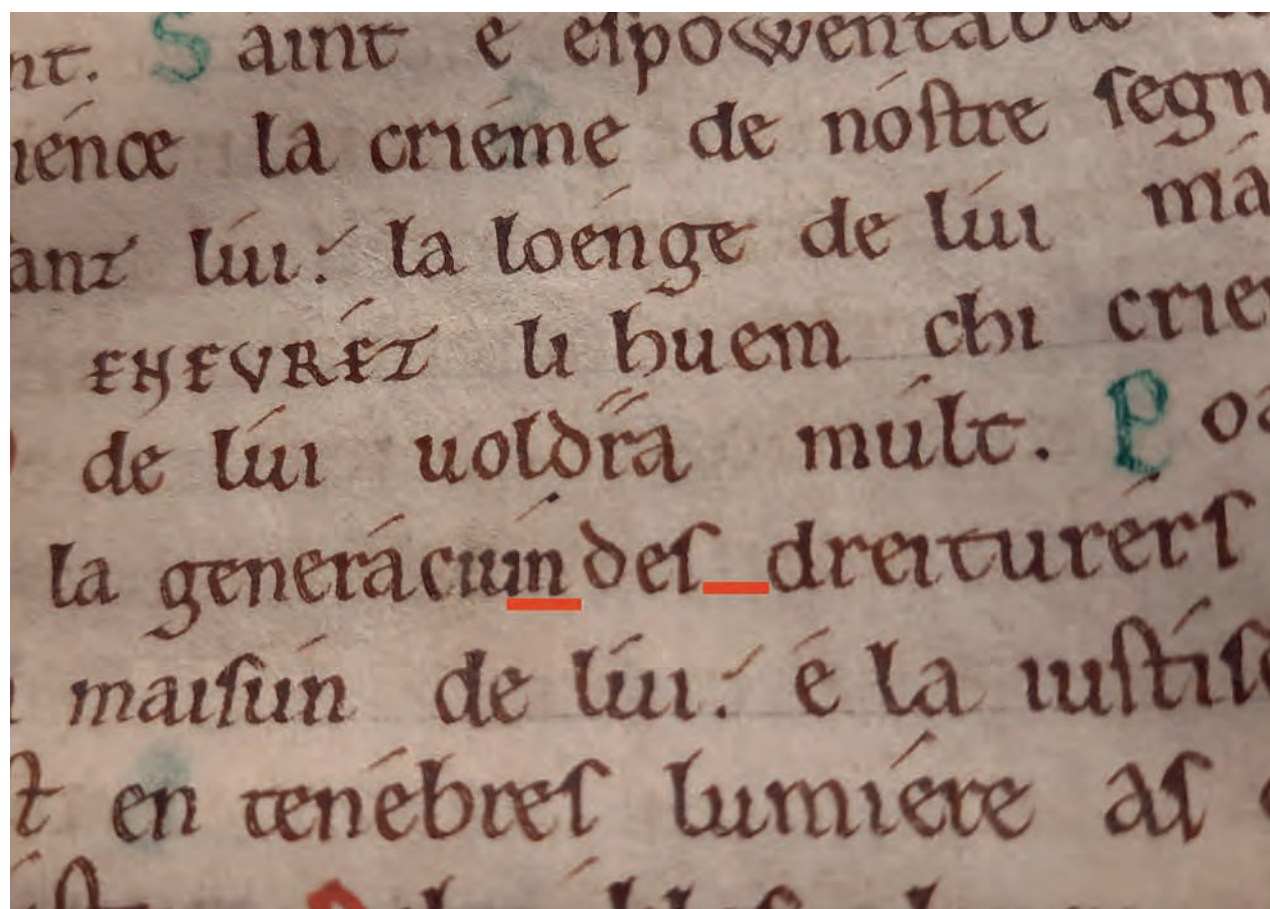 nt. Saint e espowentable
ience la crieme de nóstre segn
anz lúi: la loénge de lúi má
ENEVRÉZ li huem chi crie
de lúi uoldrá múlt. P oa
la generáciún des dreiturérs
maisún de lúi: é la iustise
st en tenébres lumiére as